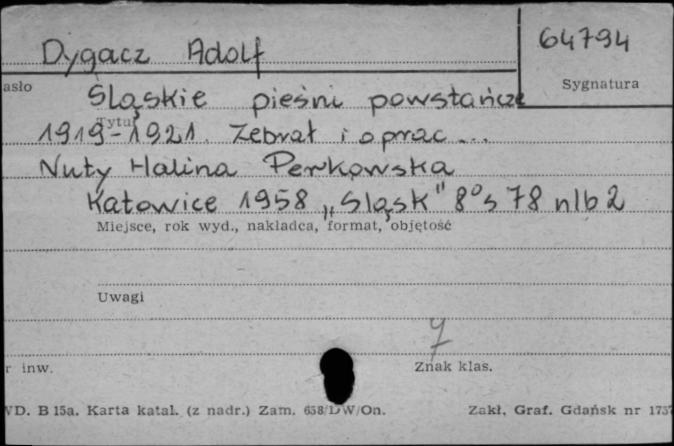 Dygacz Adolf
64794
asło
Sygnatura
Śląskie pieśni powstańcze
Tytuł
1919-1921. Zebrał i oprac...
Nuty Halina Perkowska
Katowice 1958 „Śląsk" 8° s 78 nlb 2
Miejsce, rok wyd., nakładca, format, objętość
Uwagi
7
r inw.
Znak klas.
WD. B 15a. Karta katal. (z nadr.) Zam. 658/DW/On.
Zakł. Graf. Gdańsk nr 1737